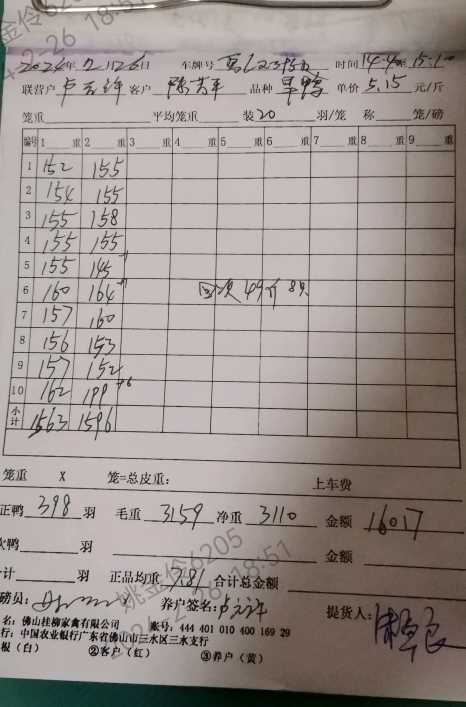 2024年2月26日 车牌号 时间 14:40至15:10
联营户 卢云许 客户 陈芳平 品种 旱鸭 单价 5.15 元/斤
笼重 平均笼重 装20 羽/笼 称 笼/磅
编号 1 重 2 重 3 重 4 重 5 重 6 重 7 重 8 重 9 重
1 152 155
2 154 155
3 155 158
4 155 155
5 155 145
6 160 164 49斤 8只
7 157 160
8 156 153
9 157 152
10 162 199 +6
小计 1563 1596
笼重 X 笼=总皮重: 上车费
正鸭 398 羽 毛重 3159 净重 3110 金额 16017
次鸭 羽 金额
计 羽 正品均重 7.81 合计总金额
磅员: 养户签名: 卢云许 提货人:
名: 佛山桂柳家禽有限公司 账号: 444 401 010 400 169 29
行: 中国农业银行广东省佛山市三水区三水支行
根（白） ②客户（红） ③养户（黄）
姚金伶6205
2024-2-26 18:51